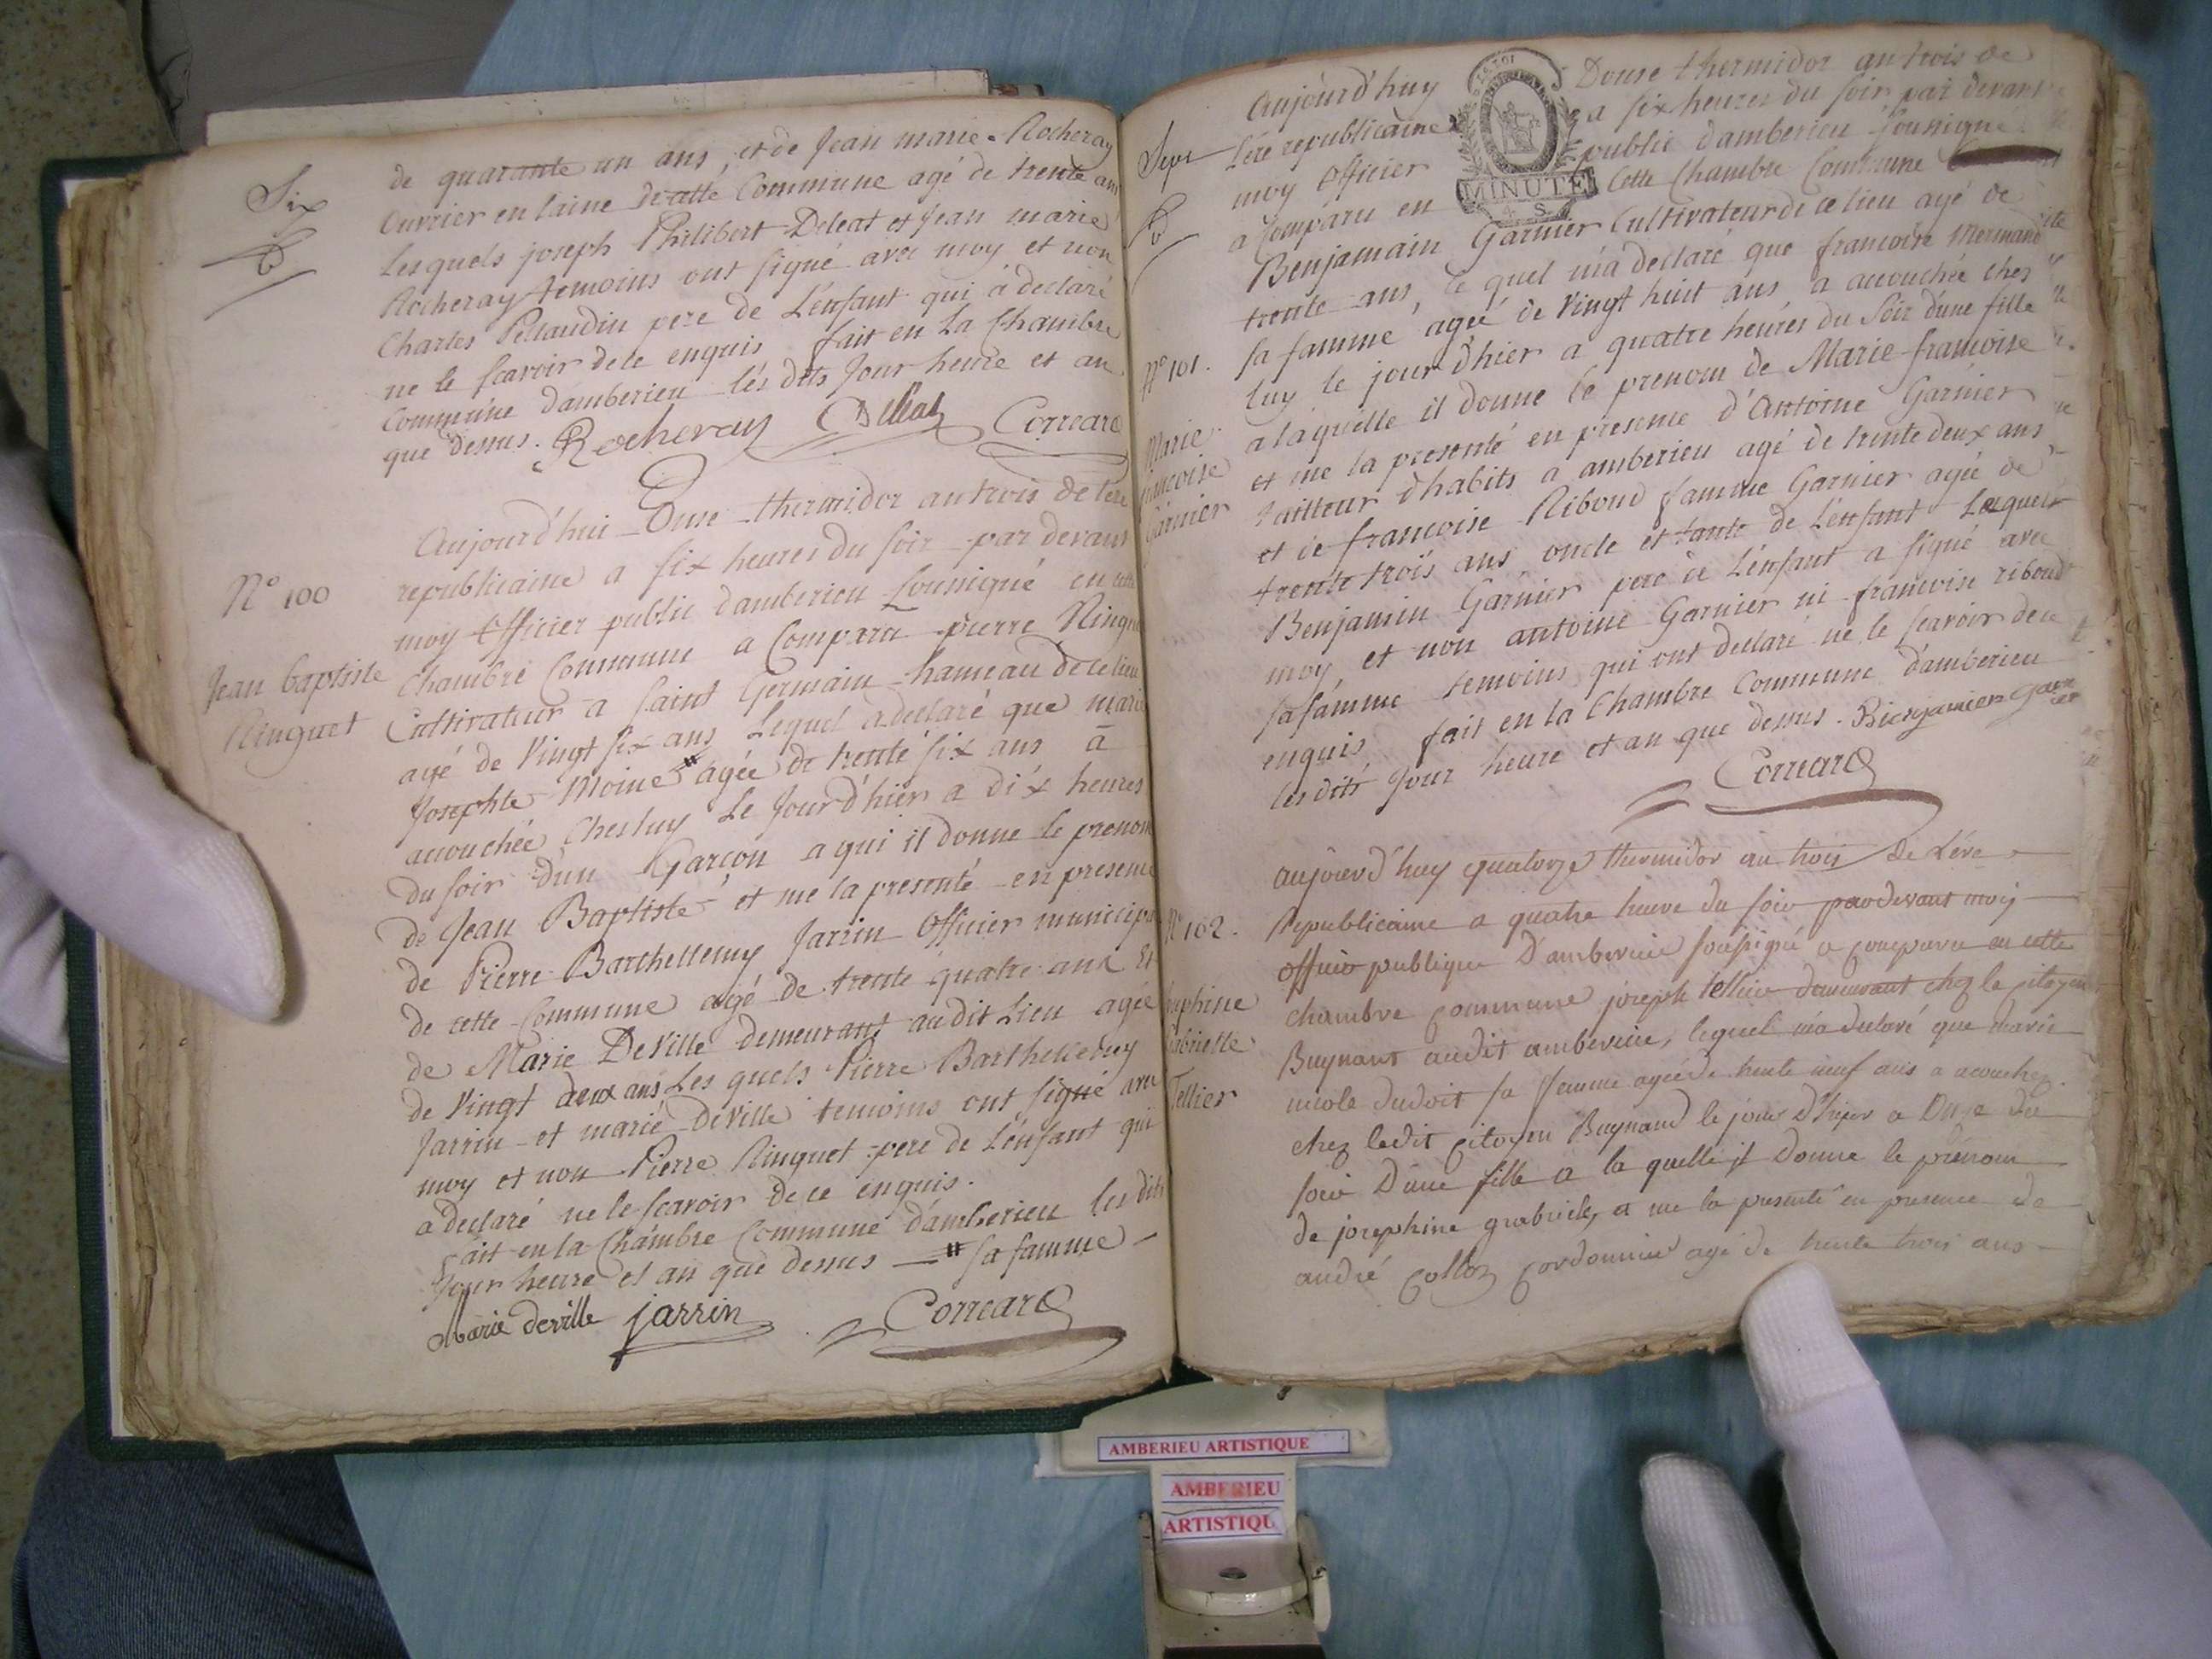 Six
de quarante un ans, et de Jean marie Rocheray
Ouvrier en laine de cette Commune agé de trente ans
Lesquels joseph Philibert Deleat et Jean marie
Rocheray temoins ont signé avec moy et non
Charles Pellaudin pere de L'enfant qui a declaré
ne le scavoir de ce enquis fait en La Chambre
Commune damberieu lés dits Jour heure et an
que dessus. Rocheray Deleat Correard
N° 100
Jean baptiste
Ringuet
Aujourd'hui Onse thermidor an trois de lere
republicaine a six heures du soir par devant
moy Officier public damberieu Soussigné en cette
Chambre Commune a Comparu pierre Ringuet
Cultivateur a saint Germain hameau de ce lieu
agé de Vingt six ans Lequel a declaré que marie
Josephte Moine # agée de trente six ans a
accouchée Chesluy Le Jour d'hier a dix heures
du soir d'un Garçon a qui il donne le prenom
de Jean Baptiste et me la presenté en presence
de Pierre Barthellemy Jarrin Officier municipal
de cette Commune agé de trente quatre ans Et
de Marie DeVille demeurant audit Lieu agée
de Vingt deux ans Les quels Pierre Barthellemy
Jarrin et marie Deville temoins ont signé avec
moy et non Pierre Ringuet pere de L'enfant qui
a declaré ne le scavoir de ce enquis.
fait en la Chambre Commune d'amberieu les dits
Jour heure et an que dessus # sa famme
Marie deville jarrin Correard
Sept
Aujourd'huy Douse thermidor an trois de
Lére republicaine a six heures du soir par devant
moy Officier public damberieu soussigné
MINUTE
4. S.
a Comparu en Cette Chambre Commune
Benjamain Garnier Cultivateur de ce lieu agé de
trente ans, Le quel m'a declaré que francoise Mermand
N° 101.
sa famme agée de Vingt huit ans a accouchée ches
luy le jour d'hier a quatre heures du Soir d'une fille
a laquelle il donne le prenom de Marie francoise
Marie
francoise
Garnier
et me la presenté en presence d'Antoine Garnier
tailleur d'habits a amberieu agé de trente deux ans
et de francoise Riboud famme Garnier agée de
trente trois ans oncle et tante de L'enfant Lequel
Benjamin Garnier pere de L'enfant a signé avec
moy, et non antoine Garnier ni francoise riboud
sa famme temoins qui ont declaré ne le scavoir de ce
enquis fait en la Chambre Commune d'amberieu
les dits Jour heure et an que dessus. Bienjamien Garnier
Correard
aujourd'huy quatorze thermidor an trois de Lére
N° 102.
Republicaine a quatre heure du soir pardevant moy
officier publique D'amberieu soussigné a comparu en cette
chambre commune joseph tellier demeurant chez le citoyen
josephine
Gabrielle
Tellier
Buynand audit amberieu, lequel m'a declaré que Marie
nicole dudoit sa femme agée de trente neuf ans a acouchez
chez ledit citoyen Buynand le jour D'hyer a Onse du
soir D'une fille a la quelle il Donne le prénom
de josephine grabriele, et me la presenté en presence de
andré Colloz cordonnier agé de trente trois ans
AMBERIEU ARTISTIQUE
AMBERIEU
ARTISTIQU